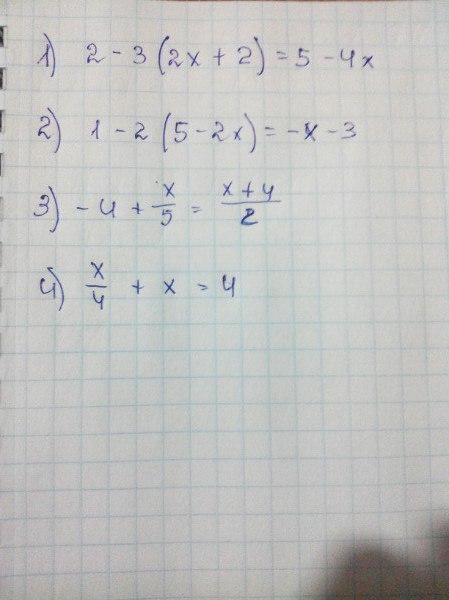 1) 2 - 3 (2x + 2) = 5 - 4x
2) 1 - 2 (5 - 2x) = -x - 3
3) - 4 + x/5 = (x + 4)/2
4) x/4 + x = 4